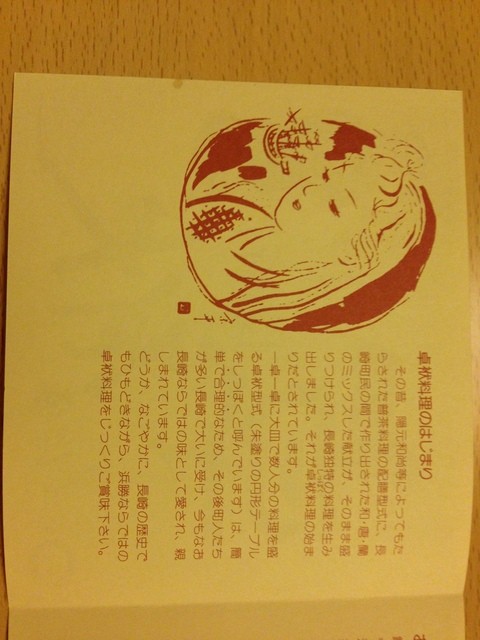 卓袱料理のはじまり
その昔、隠元和尚等によってもた
らされた普茶料理の配膳型式に、長
崎町民の間で作り出された和・唐・蘭
のミックスした献立が、そのまま盛
りつけられ、長崎独特の料理を生み
出しました。それが卓袱料理の始ま
りだとされています。
一卓一卓に大皿で数人分の料理を盛
る卓袱型式(朱塗りの円形テーブル
をしっぽくと呼んでいます)は、簡
単で合理的なため、その後町人たち
が多い長崎で大いに受け、今もなお
長崎ならではの味として愛され、親
しまれています。
どうか、なごやかに、長崎の歴史で
もひもどきながら、浜勝ならではの
卓袱料理をじっくりご賞味下さい。